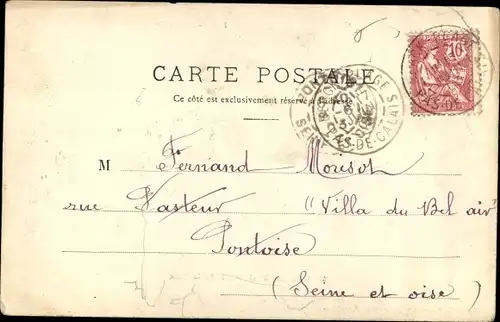 10
CARTE POSTALE
Ce côté est exclusivement réservé à l'adresse
M Fernand Moresot
rue Pasteur "Villa du Bel air"
Pontoise
(Seine et oise)